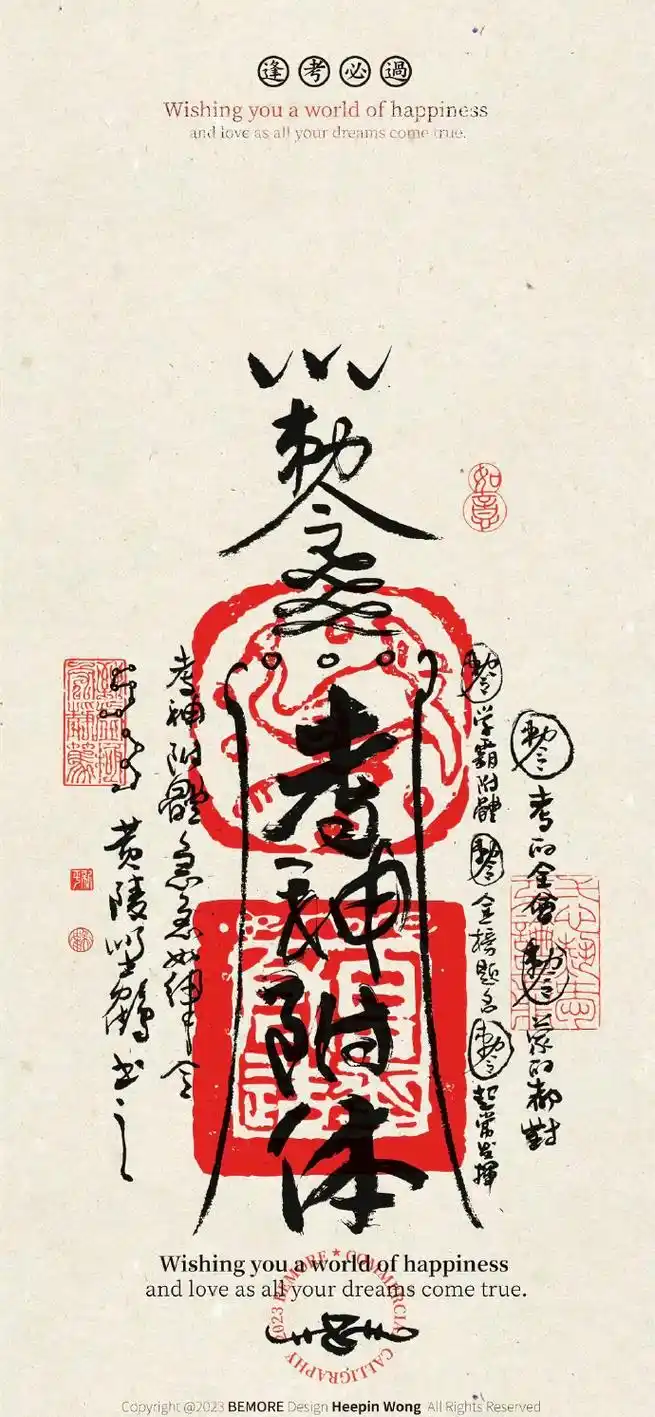 逢考必過
Wishing you a world of happiness
and love as all your dreams come true.
勅令
如意
考神附体
勅令 考的全會 勅令 蒙的都對
勅令 学霸附體 勅令 金榜题名 勅令 超常发揮
考神附體 急急如律令
黄陵野鶴 书
Wishing you a world of happiness
and love as all your dreams come true.
2023 BEMORE ★ COMMERCIAL CALLIGRAPHY
Copyright @2023 BEMORE Design Heepin Wong All Rights Reserved